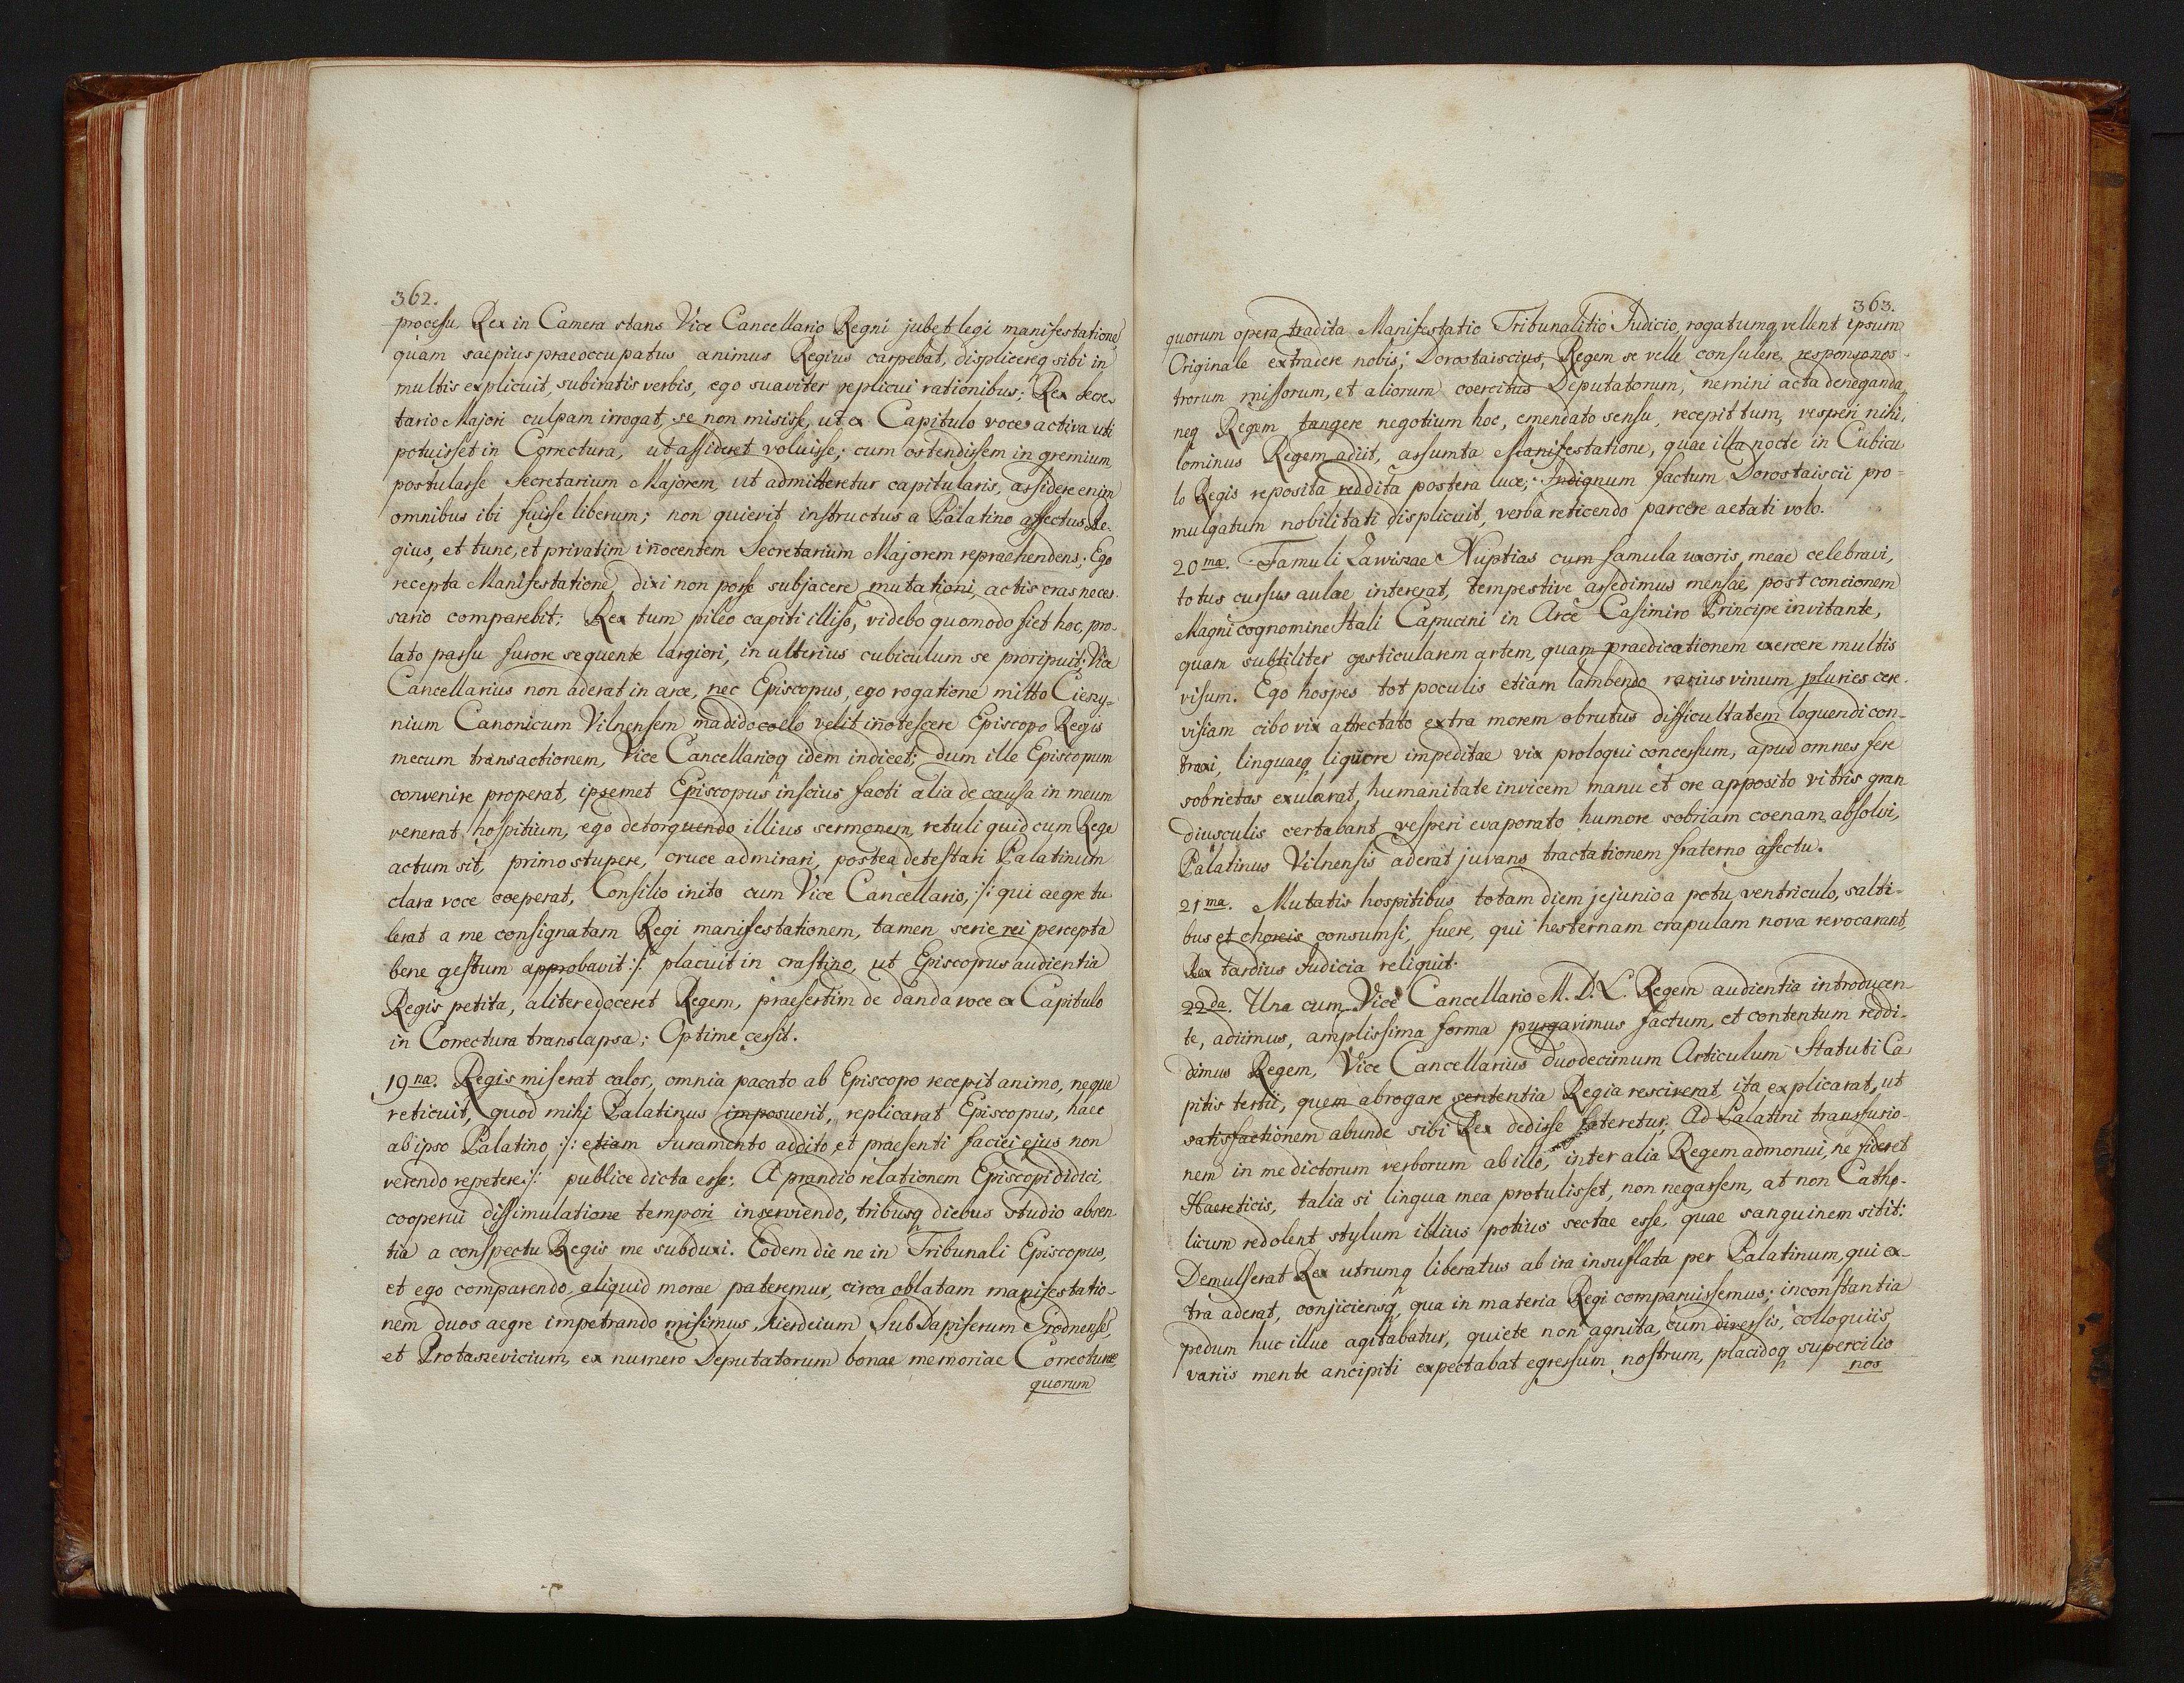 362.
processu Rex in Camera stans Vice Cancellario Regni jubet legi manifestatione
quam saepius praeoccupatus animus Regius carpebat, displicereq sibi in
multis explicuit, subiratis verbis, ego suaviter replicui rationibus; Rex Secre-
tario Majori culpam irrogat, se non misisse, ut ex Capitulo voce activa uti
potuisset in Correctura, ut assideret voluisse; cum ostendissem in gremium
postulasse Secretarium Majorem, ut admitteretur capitularis, assidere enim
omnibus ibi fuisse liberum; non quievit instructus a Palatino affectus Re-
gius, et tunc, et privatim iñocentem Secretarium Majorem repraehendens; Ego
recepta Manifestatione dixi non posse subjacere mutationi, actis cras neces-
sario comparebit; Rex tum pileo capiti illiso, videbo quomodo fiet hoc, pro-
lato passu furore sequente largiori, in ulterius cubiculum se proripuit; Vice
Cancellarius non aderat in arce, nec Episcopus, ego rogatione mitto Cieszy-
nium Canonicum Vilnensem madido coelo velit iñotescere Episcopo Regis
mecum transactionem, Vice Cancellarioq idem indicet; dum ille Episcopum
convenire properat, ipsemet Episcopus inscius facti alia de causa in meum
venerat hospitium, ego detorquendo illius sermonem, retuli quid cum Rege
actum sit, primo stupere, cruce admirari, postea detestari Palatinum
clara voce coeperat, Consilio inito cum Vice Cancellario, :/: qui aegre tu-
lerat a me consignatam Regi manifestationem, tamen serie rei percepta
bene gestum approbavit :/: placuit in crastino, ut Episcopus audientia
Regis petita, aliter edoceret Regem, praesertim de danda voce ex Capitulo
in Correctura translapsa; Optime cessit.
19na. Regis miserat calor, omnia pacato ab Episcopo recepit animo, neque
reticuit, quod mihi Palatinus imposuerit, replicarat Episcopus, haec
ab ipso Palatino :/: etiam Juramento addito, et praesenti faciei ejus non
verendo repetere :/: publice dicta esse; A prandio relationem Episcopi didici,
cooperui dissimulatione tempori inserviendo, tribusq diebus studio absen
tia a conspectu Regis me subduxi. Eodem die ne in Tribunali Episcopus,
et ego comparendo aliquid morae pateremur, circa oblatam manifestatio-
nem duos aegre impetrando misimus, Kierdeium SubDapiferum Grodnensẽ,
et Protasevicium, ex numero Deputatorum bonae memoriae Correcturae
quorum
363.
quorum opera tradita Manifestatio Tribunalitio Judicio, rogatumq vellent ipsum
Originale extradere nobis; Dorostaiscius, Regem se velle consulere, responso nos-
trorum missorum, et aliorum coercitus Deputatorum, nemini acta deneganda,
neq Regem tangere negotium hoc, emendato sensu, recepit tum, vesperi nihi-
lominus Regem adiit, assumta Manifestatione, quae illa nocte in Cubicu
lo Regis reposita reddita postera luce; Indignum factum Dorostaiscii pro-
mulgatum nobilitati displicuit, verba reticendo parcere aetati volo.
20ma. Famuli Zawiszae Nuptias cum famula uxoris meae celebravi,
totus cursus aulae intererat, tempestive assedimus mensae, post concionem
Magni cognomine Itali Capucini in Arce Casimiro Principe invitante,
quam subtiliter gesticularem artem, quam praedicationem exercere multis
visum. Ego hospes tot poculis etiam lambendo rarius vinum pluries cere-
visiam cibo vix attectato extra morem obrutus difficultatem loquendi con-
traxi, linguaeq liquore impeditae vix proloqui concessum, apud omnes fere
sobrietas exularat, humanitate invicem manu et ore apposito vitris gran
diusculis certabant, vesperi evaporato humore sobriam coenam absolvi,
Palatinus Vilnensis aderat juvans tractationem fraterno affectu.
21ma. Mutatis hospitibus totam diem jejunio a potu, ventriculo, salti-
bus et choreis consumsi, fuere, qui hesternam crapulam nova revocarant,
Rex tardius Judicia reliquit.
22da. Una cum Vice Cancellario M. D. L. Regem audientia introducen-
te, adiimus, amplissima forma purgavimus factum, et contentum reddi-
dimus Regem, Vice Cancellarius duodecimum Articulum Statuti Ca
pitis tertii, quem abrogare sententia Regia resciverat, ita explicarat, ut
satisfactionem abunde sibi Rex dedisse fateretur. Ad Palatini transfusio-
nem in me dictorum verborum ab illo, inter alia Regem admonui, ne fideret
Haereticis, talia si lingua mea protulisset, non negassem, at non Catho-
licum redolent stylum illius potius sectae esse, quae sanguinem sitit.
Demulserat Rex utrumq liberatus ab ira insuflata per Palatinum, qui ex-
tra aderat, conjiciensq, qua in materia Regi comparuissemus; inconstantia
pedum huc illuc agitabatur, quiete non agnita, cum diversis, colloquiis
variis mente ancipiti expectabat egressum nostrum, placidoq supercilio
nos